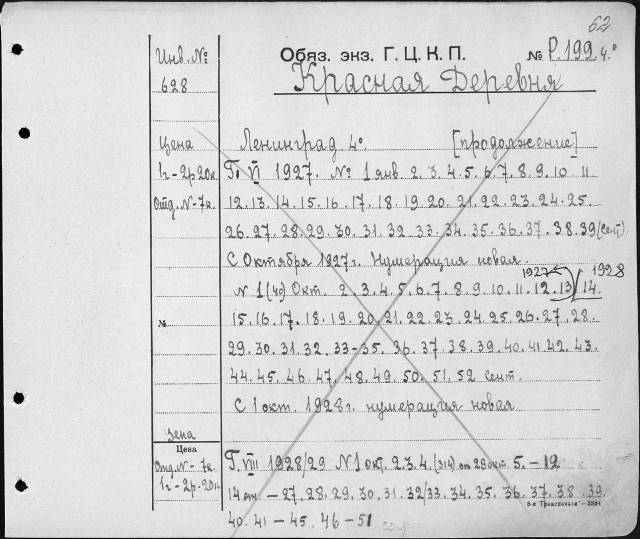 62
Инв. № Обяз. экз. Г. Ц. К. П. № Р.199 4°
628 Красная Деревня
Цена Ленинград 4° [продолжение]
1г-2р20к. Г. VI 1927. № 1 янв. 2. 3. 4. 5. 6. 7. 8. 9. 10. 11
Отд. №-7к. 12. 13. 14. 15. 16. 17. 18. 19. 20. 21. 22. 23. 24. 25.
26. 27. 28. 29. 30. 31. 32. 33. 34. 35. 36. 37. 38. 39 (сент.)
С Октября 1927 г. Нумерация новая.
1927 1928
N 1 (40) Окт. 2. 3. 4. 5. 6. 7. 8. 9. 10. 11. 12. 13) 14.
№ 15. 16. 17. 18. 19. 20. 21. 22. 23. 24. 25. 26. 27. 28.
29. 30. 31. 32. 33-35. 36. 37. 38. 39. 40. 41. 42. 43.
44. 45. 46. 47. 48. 49. 50. 51. 52 сент.
С 1 окт. 1928 г. нумерация новая
Цена
Цена
Отд. №-7к. Г. VIII 1928/29 N 1 окт. 2. 3. 4. (314) от 28 окт 5. - 12
1г-2р-20к. 14 - 27. 28. 29. 30. 31. 32/33. 34. 35. 36. 37. 38. 39.
40. 41 - 45. 46 - 51 сент